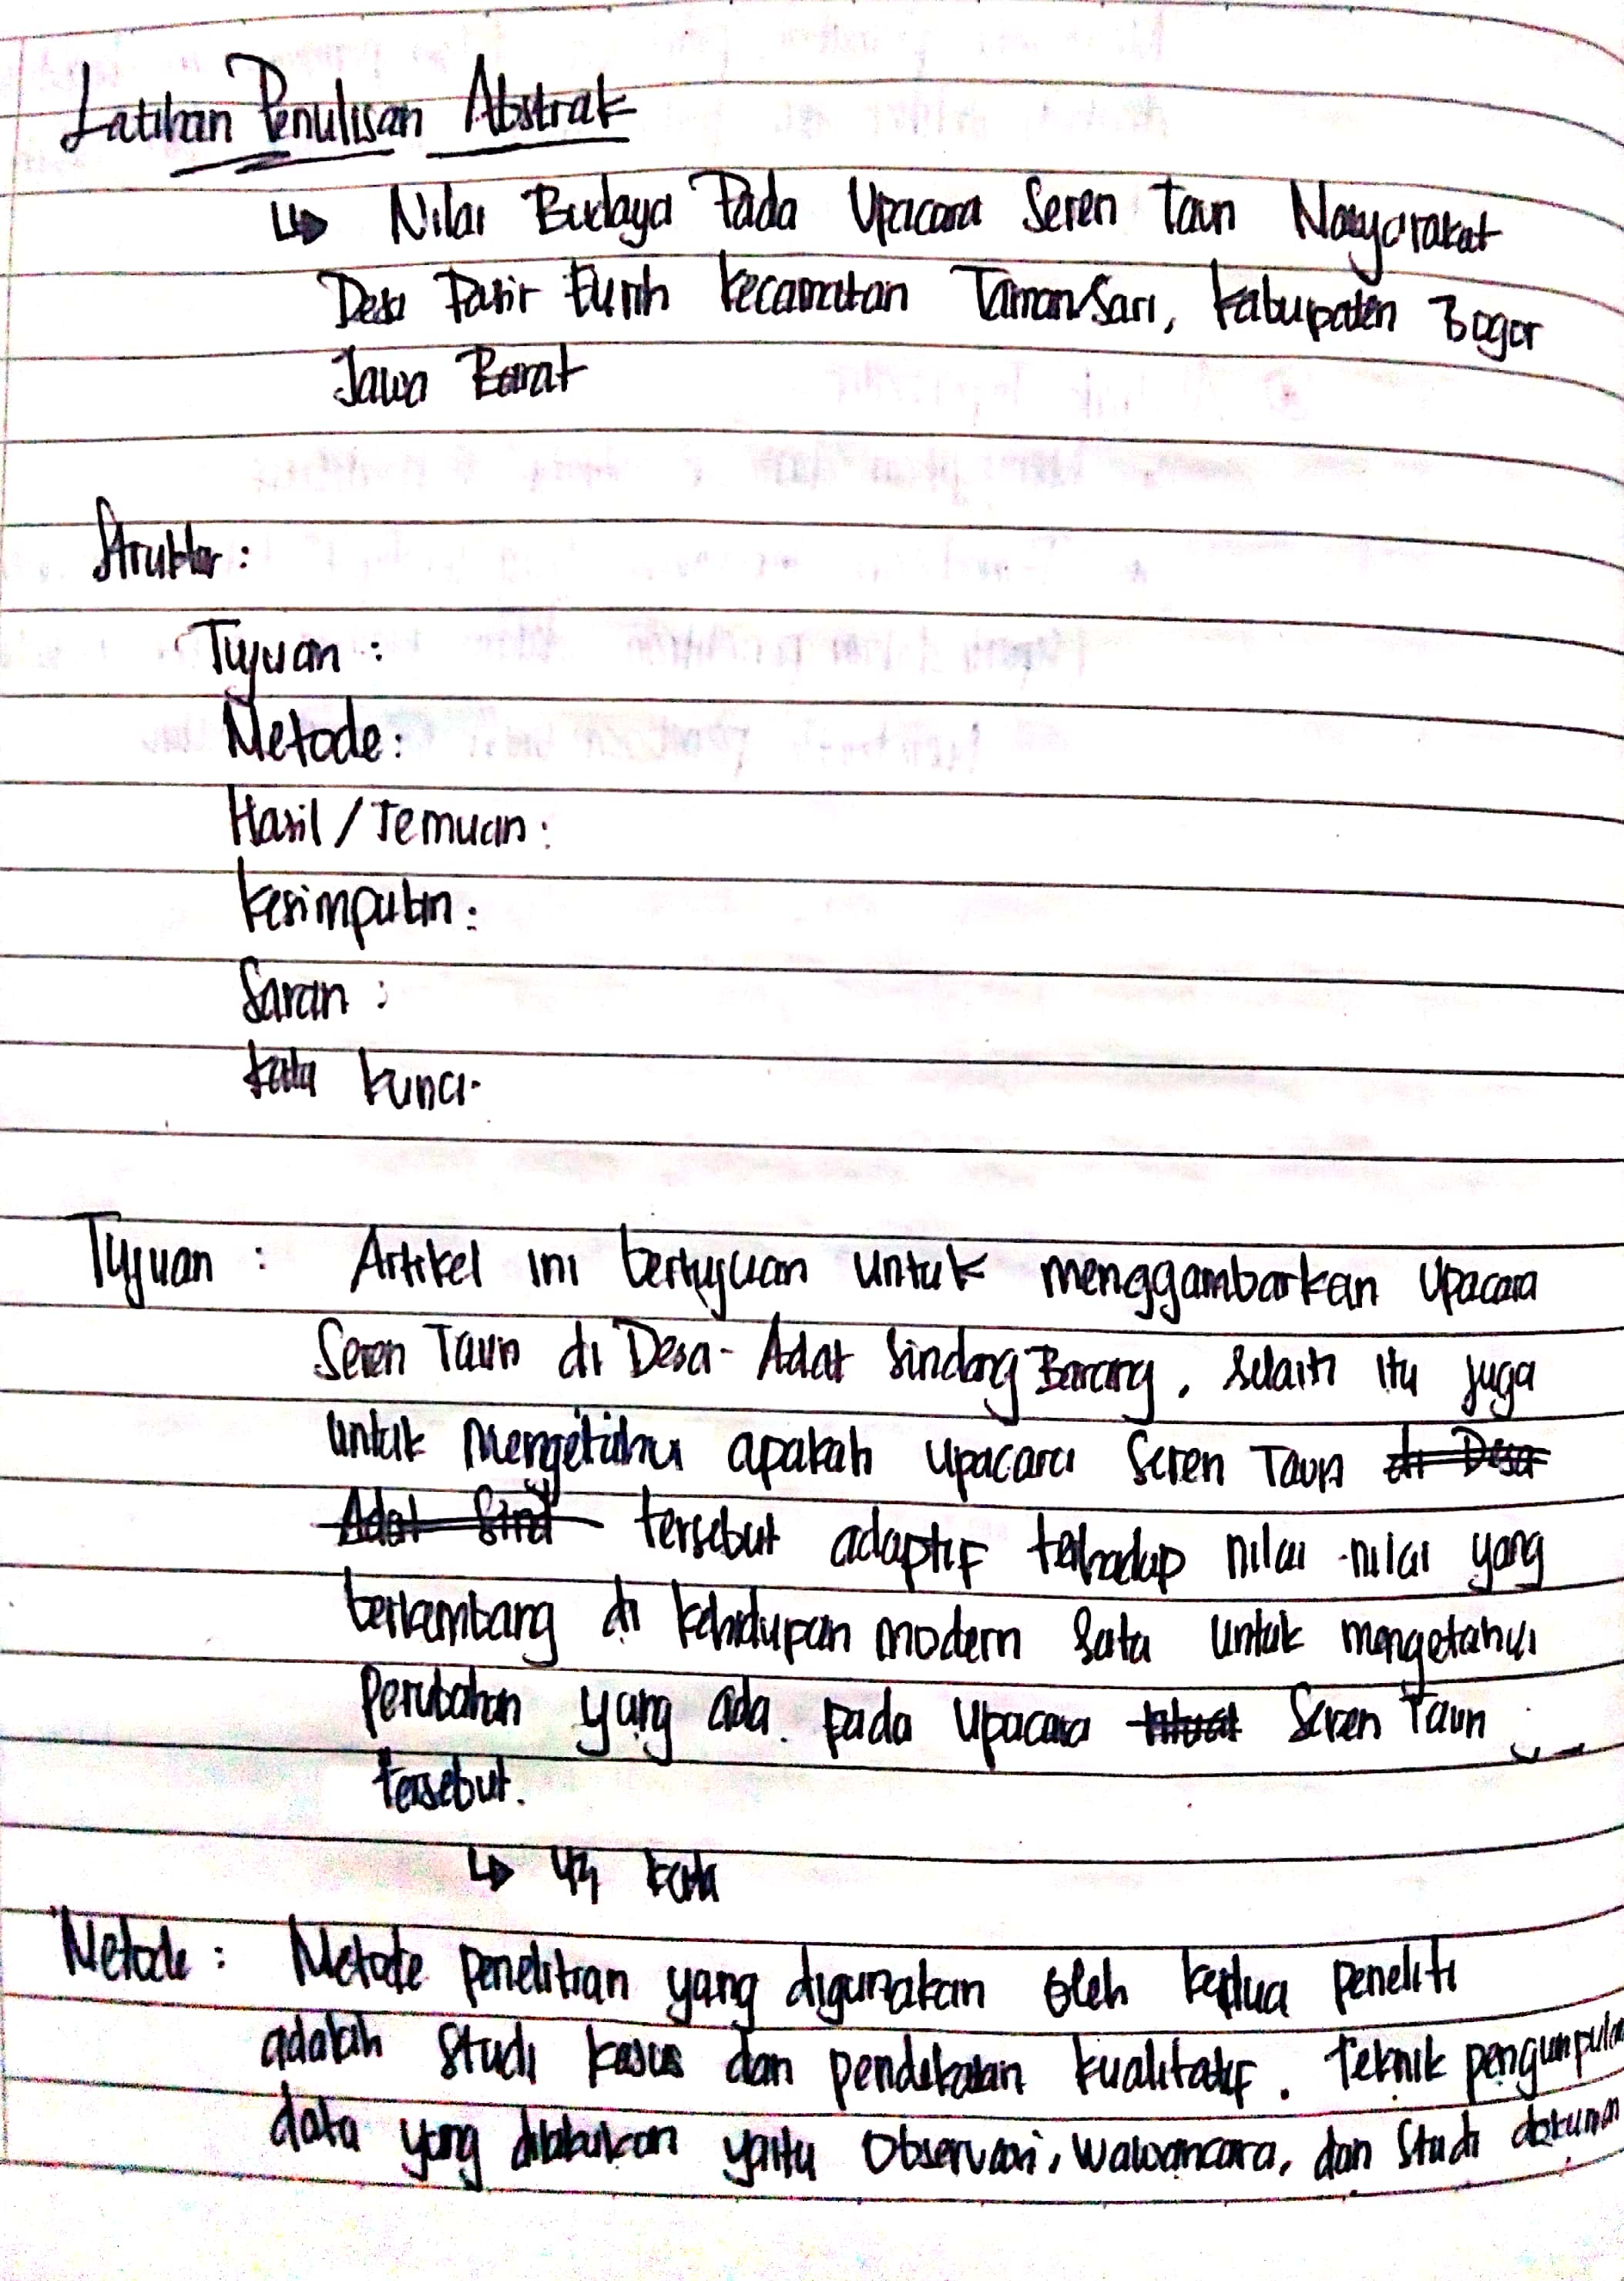 Latihan Penulisan Abstrak
↳ Nilai Budaya Pada Upacara Seren Taun Masyarakat
Desa Pasir Eurih Kecamatan Tamansari, Kabupaten Bogor
Jawa Barat
Struktur :
Tujuan :
Metode :
Hasil / Temuan :
Kesimpulan :
Saran :
Kata kunci
Tujuan : Artikel ini bertujuan untuk menggambarkan upacara
Seren Taun di Desa Adat Sindang Barang, selain itu juga
untuk mengetahui apakah upacara Seren Taun di Desa
Adat Sind tersebut adaptif terhadap nilai-nilai yang
berkembang di kehidupan modern serta untuk mengetahui
perubahan yang ada pada upacara Seren Taun
tersebut.
↳ kata
Metode : Metode penelitian yang digunakan oleh kedua peneliti
adalah studi kasus dan pendekatan kualitatif. Teknik
data yang dilakukan yaitu observasi, wawancara, dan studi